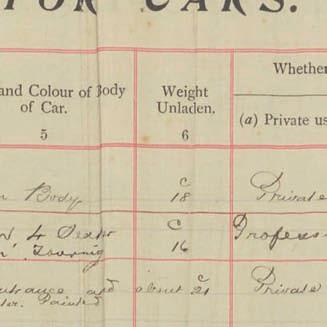 FOR CARS.
and Colour of Body of Car.
5
Weight Unladen.
6
Whether
(a) Private us
Body
c
18
Private
4 Seater
Touring
c
16
Profess
entrance and
Painted
about
c
21
Private